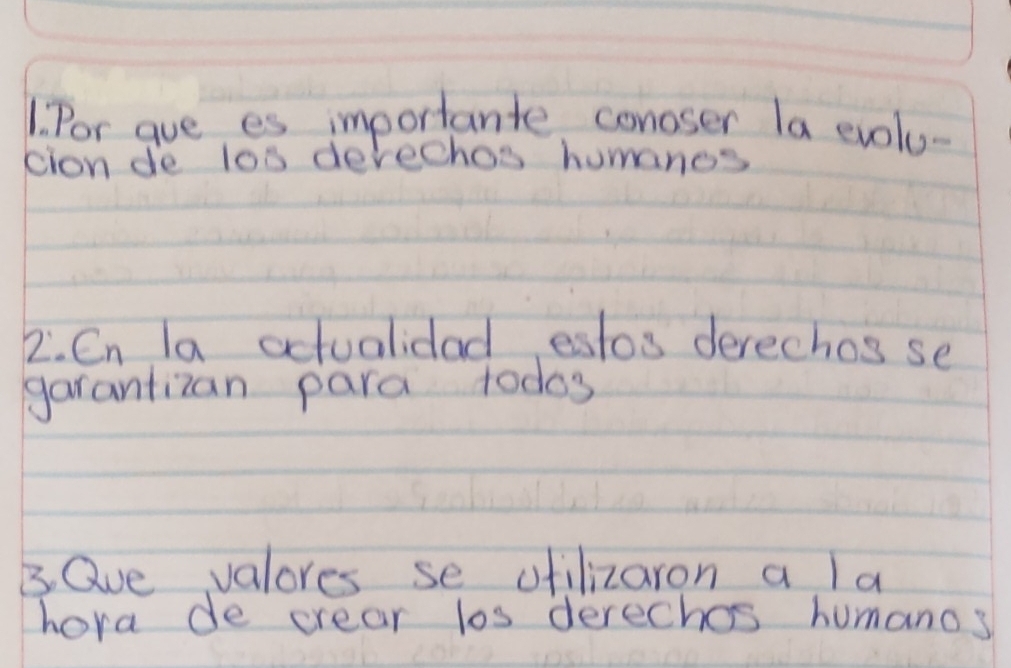 1. Por que es importante conoser la evolu-
cion de los derechos humanos
2. En la actualidad estos derechos se
garantizan para todos
3. Que valores se utilizaron a la
hora de crear los derechos humanos